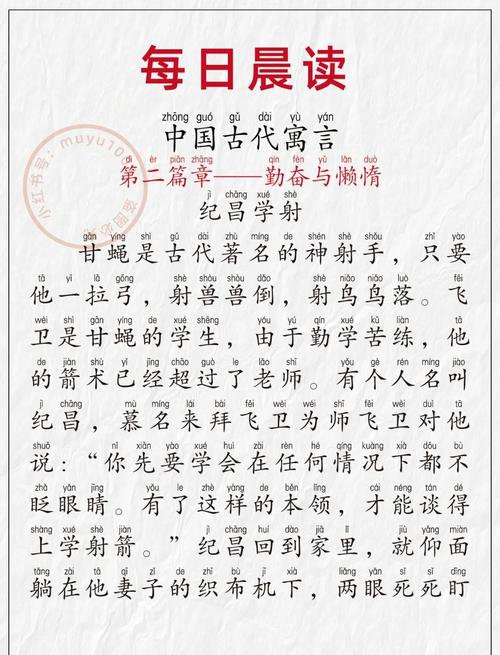 每日晨读
zhōng guó gǔ dài yù yán
中国古代寓言
dì èr piān zhāng qín fèn yǔ lǎn duò
第二篇章——勤奋与懒惰
jì chāng xué shè
纪昌学射
gān yíng shì gǔ dài zhù míng de shén shè shǒu zhǐ yào
甘蝇是古代著名的神射手，只要
tā yì lā gōng shè shòu shòu dǎo shè niǎo niǎo luò fēi
他一拉弓，射兽兽倒，射鸟鸟落。飞
wèi shì gān yíng de xué shēng yóu yú qín xué kǔ liàn tā
卫是甘蝇的学生，由于勤学苦练，他
de jiàn shù yǐ jīng chāo guò le lǎo shī yǒu gè rén míng jiào
的箭术已经超过了老师。有个人名叫
jǐ chāng mù míng lái bài fēi wèi wéi shī fēi wèi duì tā
纪昌，慕名来拜飞卫为师飞卫对他
shuō nǐ xiān yào xué huì zài rèn hé qíng kuàng xià dōu bù
说：“你先要学会在任何情况下都不
zhǎ yǎn jīng yǒu le zhè yàng de běn lǐng cái néng tán dé
眨眼睛。有了这样的本领，才能谈得
shàng xué shè jiàn jǐ chāng huí dào jiā lǐ jiù yǎng miàn
上学射箭。”纪昌回到家里，就仰面
tǎng zài tā qī zǐ de zhī bù jī xià liǎng yǎn sǐ sǐ dīng
躺在他妻子的织布机下，两眼死死盯
小红书号：muyu106
盗图必究